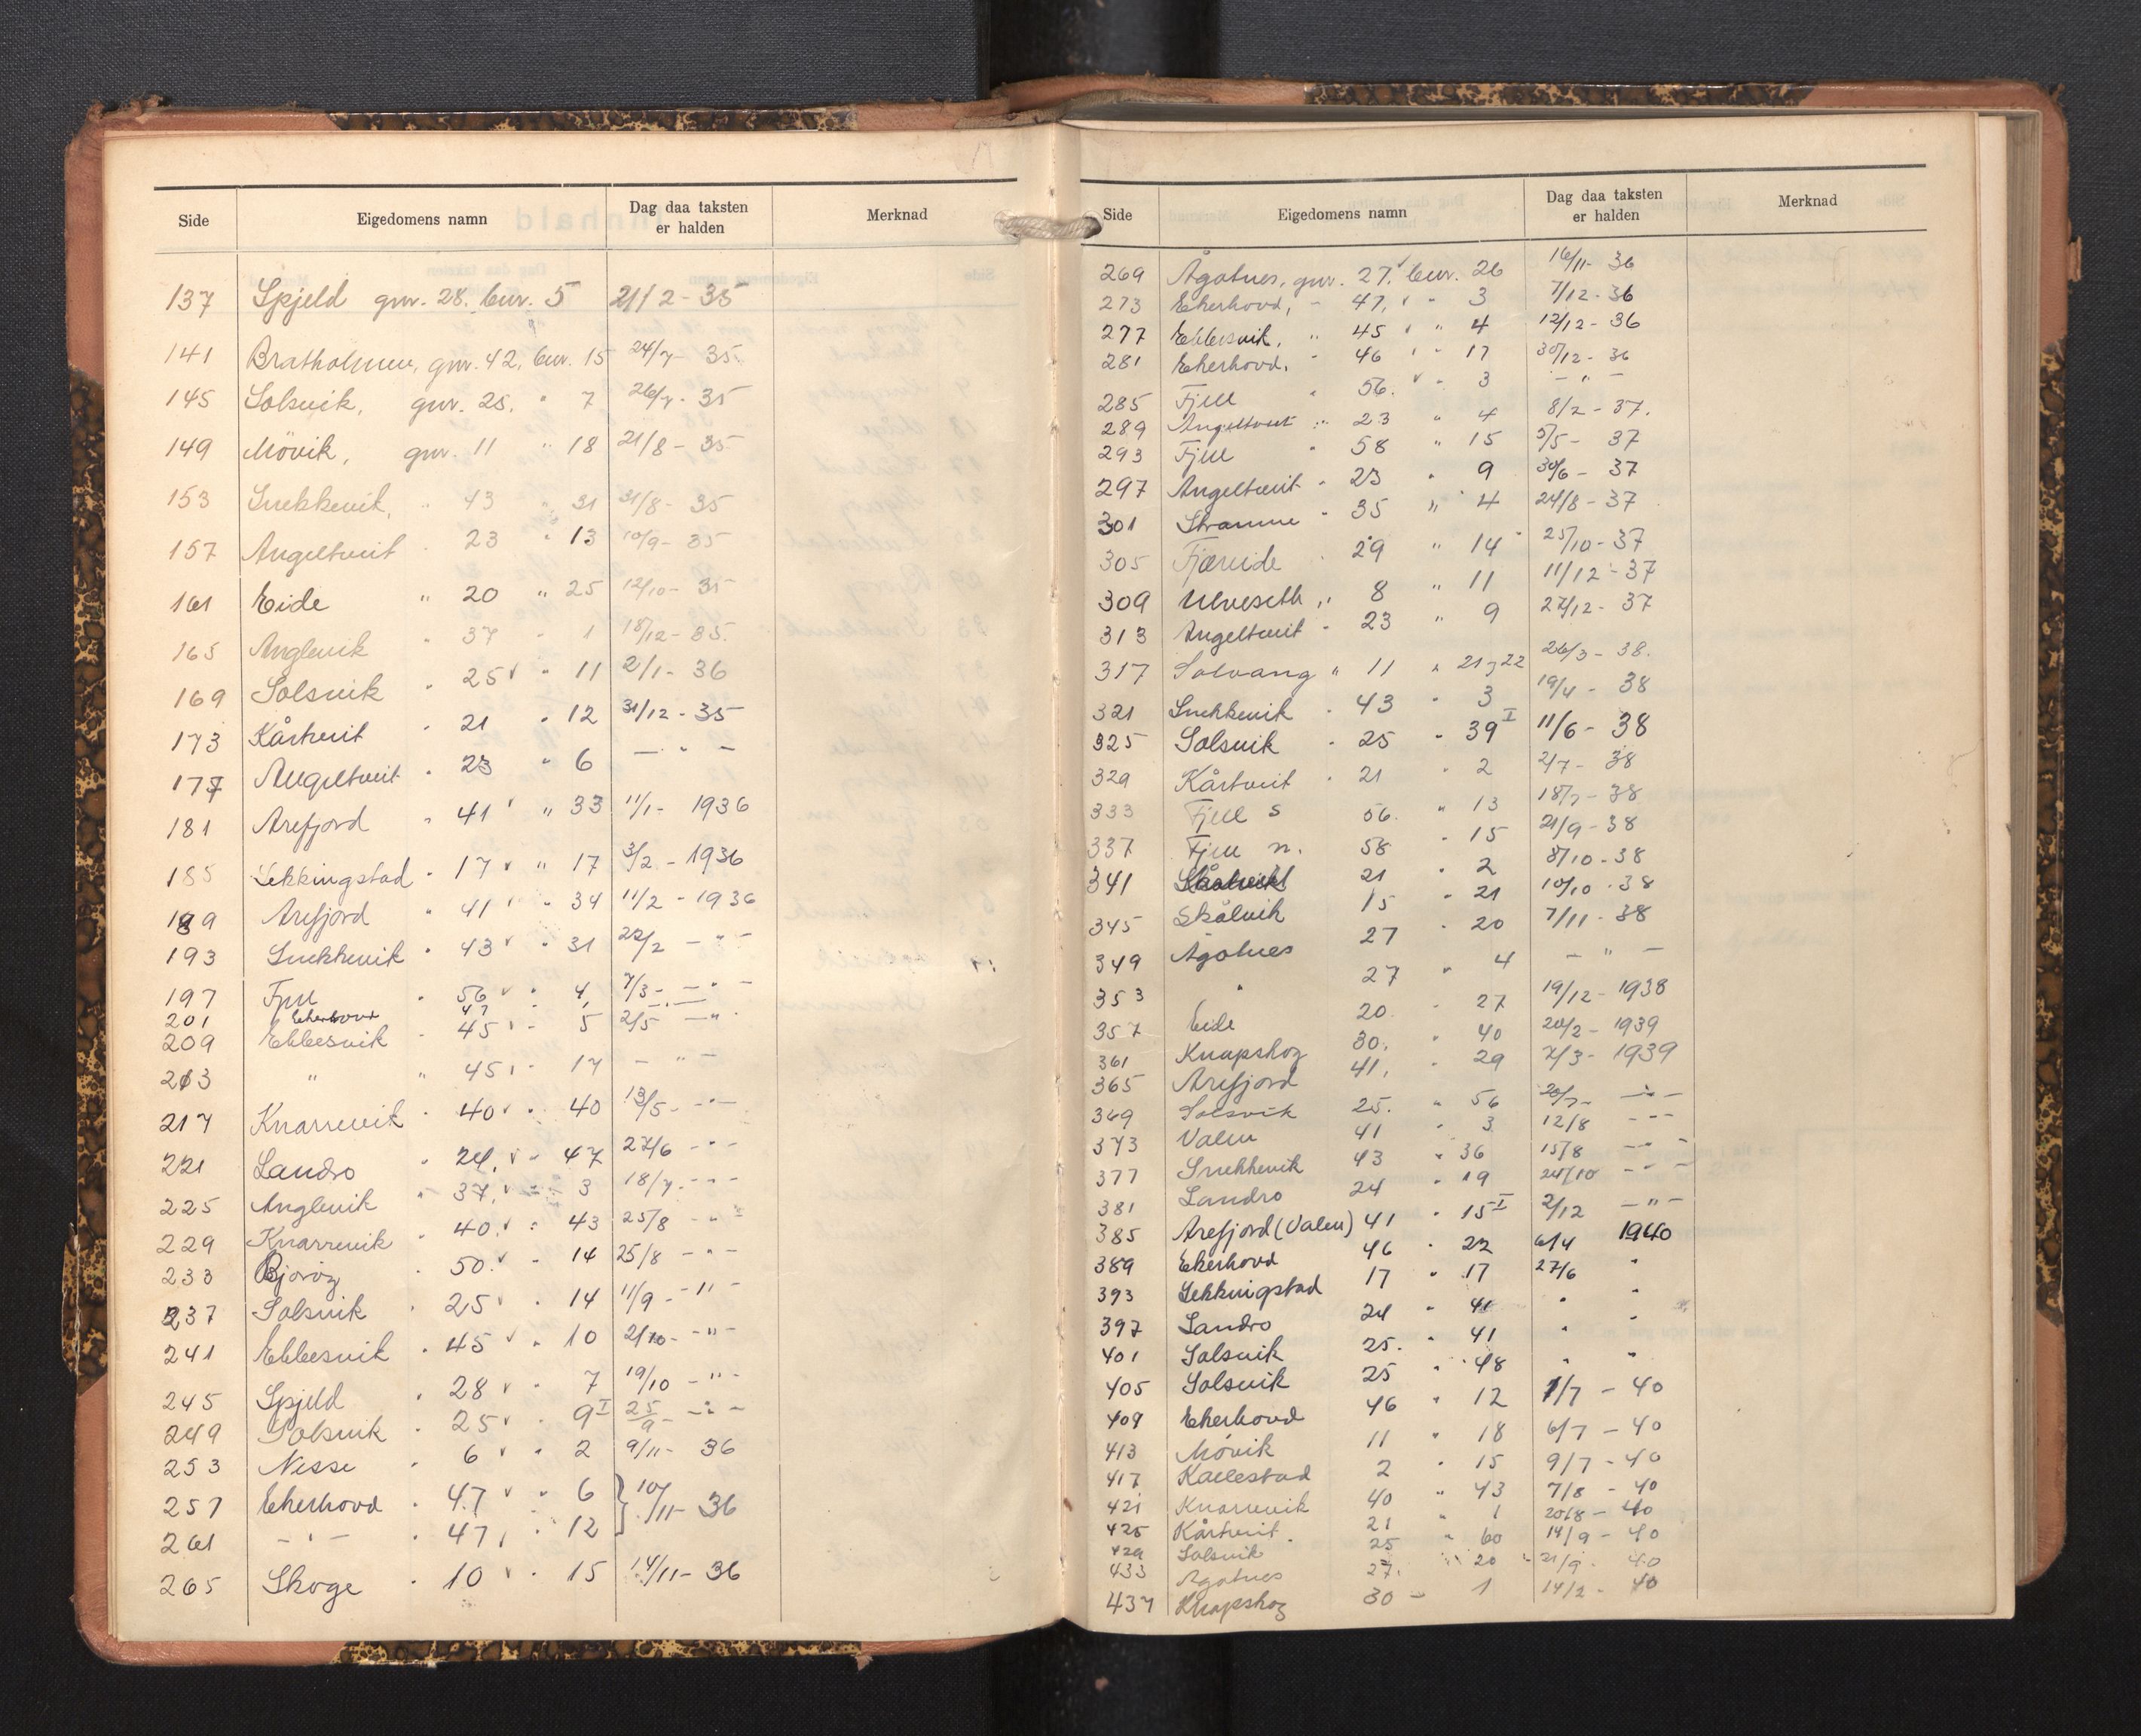 Side Eigedomens namn Dag daa taksten er halden Merknad
137 Spjeld gnr. 28. bnr. 5 21/2 - 35
141 Bratholmen, gnr. 42, bnr. 15 24/7 - 35
145 Solsvik, gnr. 25. " 7 26/7 - 35
149 Mövik, gnr. 11 " 18 21/8 - 35
153 Snekkevik, " 43 " 31 31/8 - 35
157 Angeltveit " 23 " 13 10/9 - 35
161 Eide " 20 " 25 12/10 - 35
165 Anglevik " 37 " 1 18/12 - 35.
169 Solsvik " 25 " 11 2/1 - 36
173 Kårtveit " 21 " 12 31/12 - 35
177 Angeltveit " 23 " 6 — " —
181 Arefjord " 41 " 33 11/1 - 1936
185 Lekkingstad " 17 " 17 3/2 - 1936
189 Arefjord " 41 " 34 11/2 - 1936
193 Snekkevik " 43 " 31 22/2 — " —
197 Fjell " 56 " 4 7/3 - — " —
201 Ekerhovd 47
209 Ebbesvik " 45 " 5 2/5 — " —
213 " " 45 " 17 — " —
217 Knarrevik " 40 " 40 13/5 - — " —
221 Landro " 24. " 47 27/6 - " -
225 Anglevik " 37. " 3 18/7 - " -
229 Knarrevik " 40. " 43 25/8 - " -
233 Bjoröy " 50. " 14 25/8 - " -
237 Solsvik " 25 " 14 11/9 - " -
241 Ebbesvik " 45 " 10 2/10 - " -
245 Spjeld " 28 " 7 19/10 - " -
249 Solsvik " 25 " 9 I 25/9 - — " —
253 Nesse " 6 " 2 9/11 - 36
257 Ekerhovd " 47 " 6 } 10/11 - 36
261 - " - " 47 " 12
265 Skoge " 10 " 15 14/11 - 36
Side Eigedomens namn Dag daa taksten er halden Merknad
269 Ågotnes, gnr. 27. bnr. 26 16/11 - 36
273 Ekerhovd, " 47, " 3 7/12 - 36
277 Ebbesvik, " 45 " 4 12/12 - 36
281 Ekerhovd, " 46 " 17 30/12 - 36
285 Fjell " 56. " 3 — " —
289 Angeltveit " 23 " 4 8/2 - 37.
293 Fjell " 58 " 15 5/5 - 37
297 Angeltveit " 23 " 9 30/6 - 37
301 Straume " 35 " 4 24/8 - 37
305 Fjæreide " 29 " 14 25/10 - 37
309 Ulveseth " 8 " 11 11/12 - 37
313 Angeltveit " 23 " 9 27/12 - 37
317 Solvang " 11 " 21 22 26/3 - 38.
321 Snekkevik " 43 " 3 19/4 - 38
325 Solsvik " 25 " 39 I 11/6 - 38
329 Kårtveit " 21 " 2 2/7 - 38
333 Fjell s 56. " 13 18/7 - 38
337 Fjell n. 58 " 15 21/9 - 38
341 21 " 2 8/10 - 38
345 Skålvik 15 " 21 10/10 - 38
349 Ågotnes 27 " 20 7/11 - 38
353 " 27 " 4 — " —
357 Eide 20. " 27 19/12 - 1938
361 Knapskog 30. " 40 20/2 - 1939
365 Arefjord 41, " 29 7/3 - 1939
369 Solsvik 25. " 56 20/7 - — " —
373 Valen 41 " 3 12/8 - " -
377 Snekkevik 43 " 36 15/8 — " —
381 Landro 24 " 19 24/10 - " -
385 Arefjord (Valen) 41 " 15 I 2/12 — " —
389 Ekerhovd 46 " 22 6/4 1940
393 Lekkingstad 17 " 17 27/6 "
397 Landro 24 " 41 " "
401 Solsvik 25. " 41 " "
405 Solsvik 25 " 48 " "
409 Ekerhovd 46 " 12 1/7 - 40
413 Mövik 11 " 18 6/7 - 40
417 Kallestad 2 " 15 9/7 - 40
421 Knarrevik 40 " 43 7/8 - 40
425 Kårtveit. 21 " 1 20/8 - 40
429 Solsvik 25 " 60 14/9 - 40
433 Agotnes 27. " 20 21/9 - 40
437 Knapskog 30 - 1 14/2 - 40